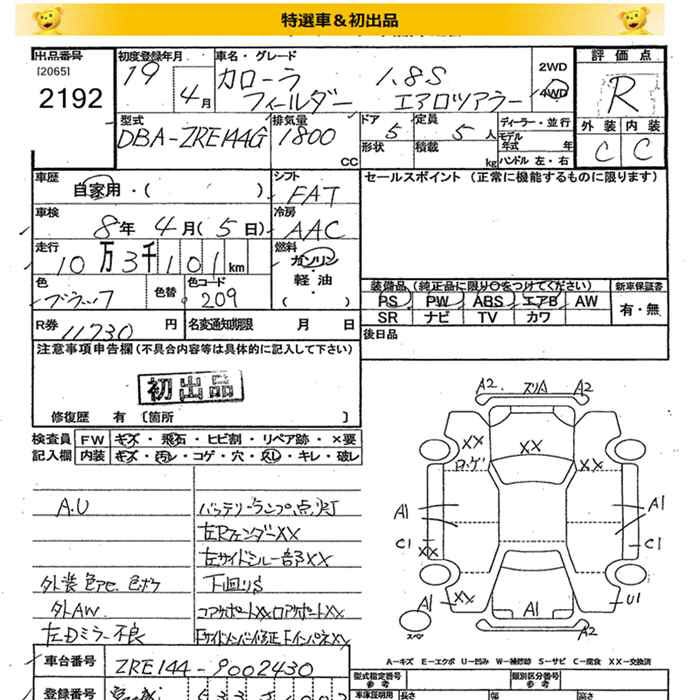 特選車＆初出品
出品番号 初度登録年月 車名・グレード 2WD 評価点
[2065] 19 カローラ 1.8S 4WD R
2192 4月 フィールダー エアロツアラー 外装 内装
型式 排気量 ドア 定員 ディーラー・並行 C C
DBA-ZRE144G 1800 5 5人 モデル年式 年
CC 形状 積載 kg ハンドル 左・右
車歴 シフト セールスポイント (正常に機能するものに限ります)
自家用・( ) FAT
車検 冷房
8年 4月(5日) AAC
走行 燃料
10万3千101km ガソリン・
色 色替 色コード 軽油
ブラック 209 ( )
装備品 (純正品に限り○をつけてください) 新車保証書
PS PW ABS エアB AW 有・無
SR ナビ TV カワ
R券 11730 円 名変通知期限 月 日 後日品
注意事項申告欄(不具合内容等は具体的に記入して下さい)
初出品
修復歴 有 〔箇所 〕
検査員 FW キズ・飛石・ヒビ割・リペア跡・×要
記入欄 内装 キズ・汚レ・コゲ・穴・スレ・キレ・破レ
A2 スリA A2
XX XX XX
A1 A1
C1 XX C1
A1 XX A1 U1
スペ A2
A.U バッテリーランプ点灯
左RフェンダーXX
左サイドシルー部XX
外装色アセ、色ボケ 下回りS
外AW コアサポートXXロアサポートXX
左Dミラー不良 Fサイドメンバー修正FインパネXX
車台番号 ZRE144-9002430
A-キズ E-エクボ U-凹み W-補修跡 S-サビ C-腐食 XX-交換済
登録番号 宮城
型式指定番号 参考 類別区分番号 参考
車庫証明用 長さ 幅 高さ